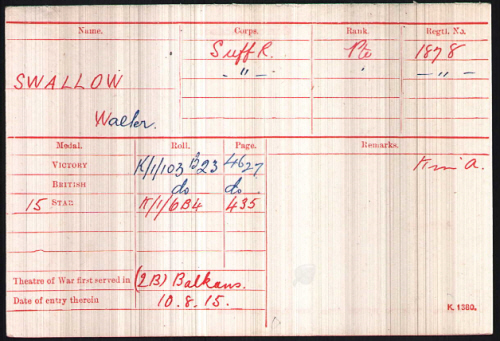 Name. Corps. Rank. Regtl. No.
SWALLOW Suff R. Pte 1878
-"- " -"-
Walter.
Medal. Roll. Page. Remarks.
VICTORY K/1/103 B23 4627 K in A.
BRITISH do do
15 STAR K/1/6B4 435
Theatre of War first served in (2B) Balkans.
Date of entry therein 10.8.15.
K. 1380.